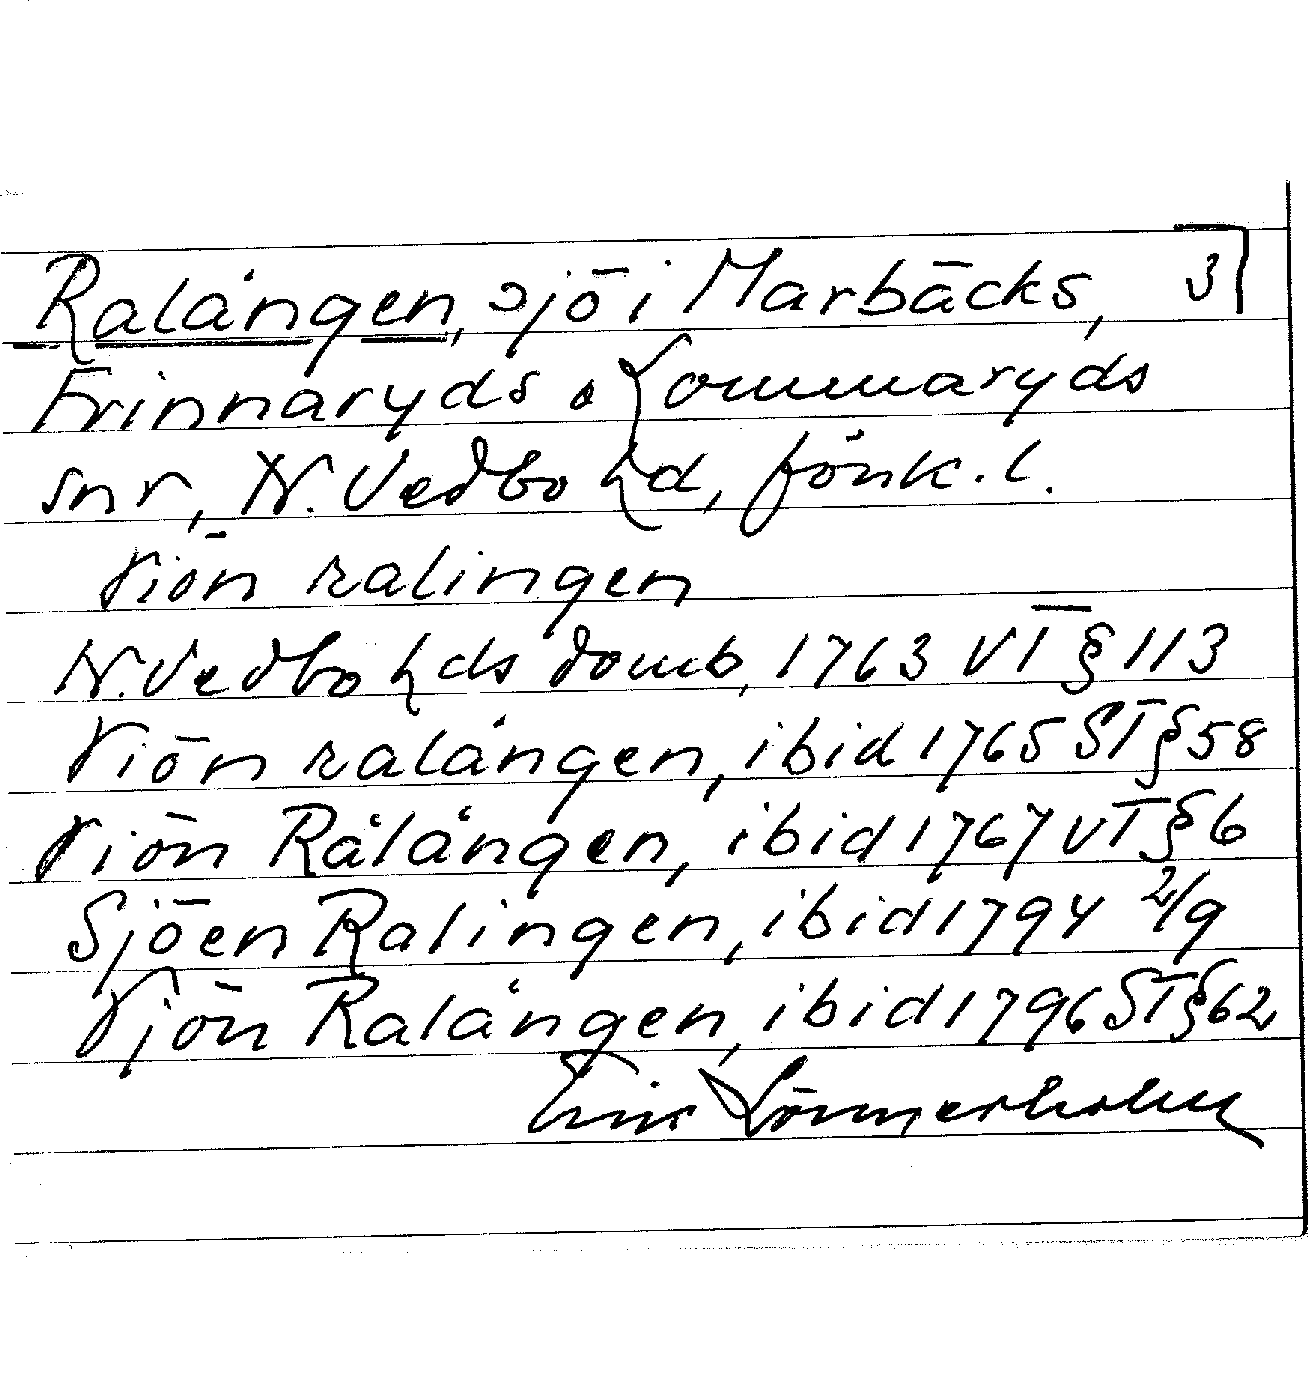 Ralången, sjö i Marbäcks, 3
Frinnaryds o Lommaryds
snr, N. Vedbo hd, Jönk. l.
siön ralingen
N. Vedbo hds domb, 1763 VT § 113
siön ralången, ibid 1765 ST § 58
siön Rålången, ibid 1767 VT § 6
Sjöen Ralingen, ibid 1794 2/9
sjön Ralången, ibid 1796 ST § 62
Eric Lönnerholm